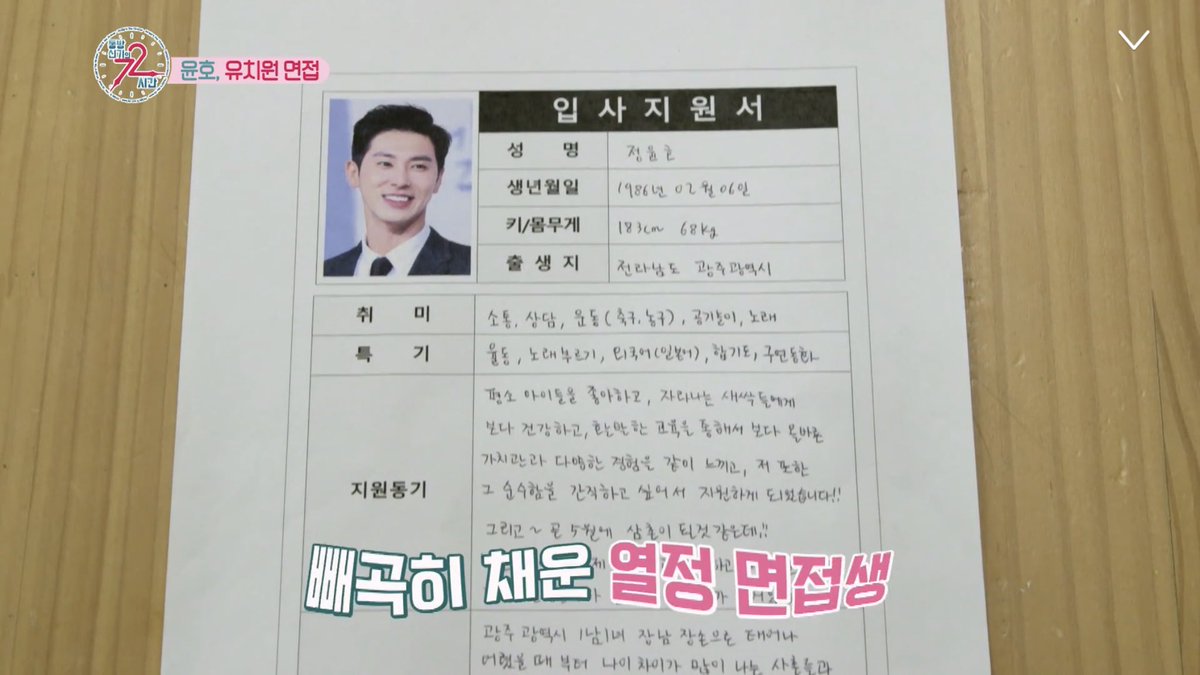 동방
신기의
72
시간
윤호, 유치원 면접
입 사 지 원 서
성 명 정윤호
생년월일 1986년 02월 06일
키/몸무게 183cm 68kg
출 생 지 전라남도 광주광역시
취 미 소통, 상담, 운동(축구,농구), 공기놀이, 노래
특 기 율동, 노래부르기, 외국어(일본어), 합기도, 구연동화
지원동기
평소 아이들을 좋아하고, 자라나는 새싹들에게
보다 건강하고, 활발한 교육을 통해서 보다 올바른
가치관과 다양한 경험을 같이 느끼고, 저 또한
그 순수함을 간직하고 싶어서 지원하게 되었습니다!!
그리고~ 곧 5월에 삼촌이 될것 같은데,!!
빼곡히 채운 열정 면접생
광주 광역시 1남1녀 장남 장손으로 태어나
어렸을 때 부터 나이차이가 많이 나는 사촌들과